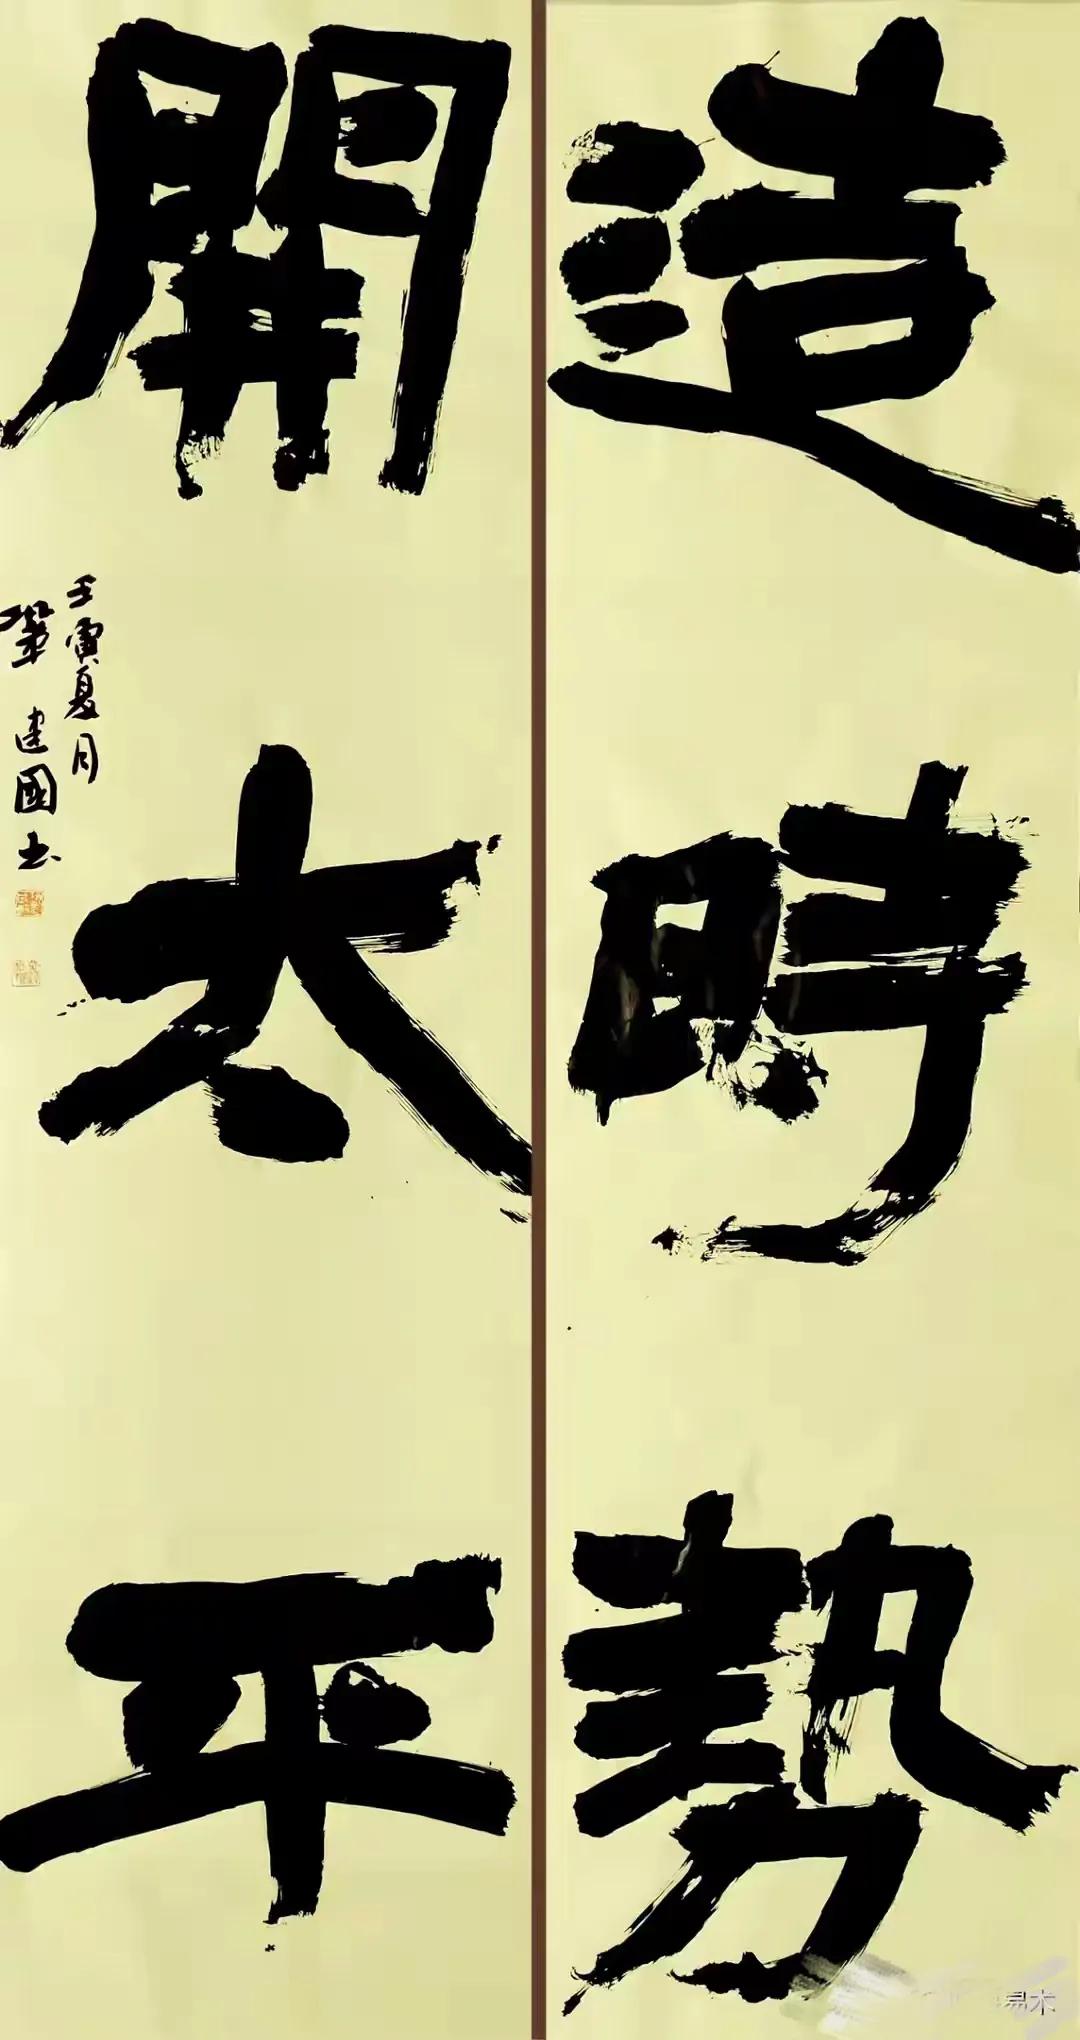 造時勢
開太平
壬寅夏月
鞏建國书